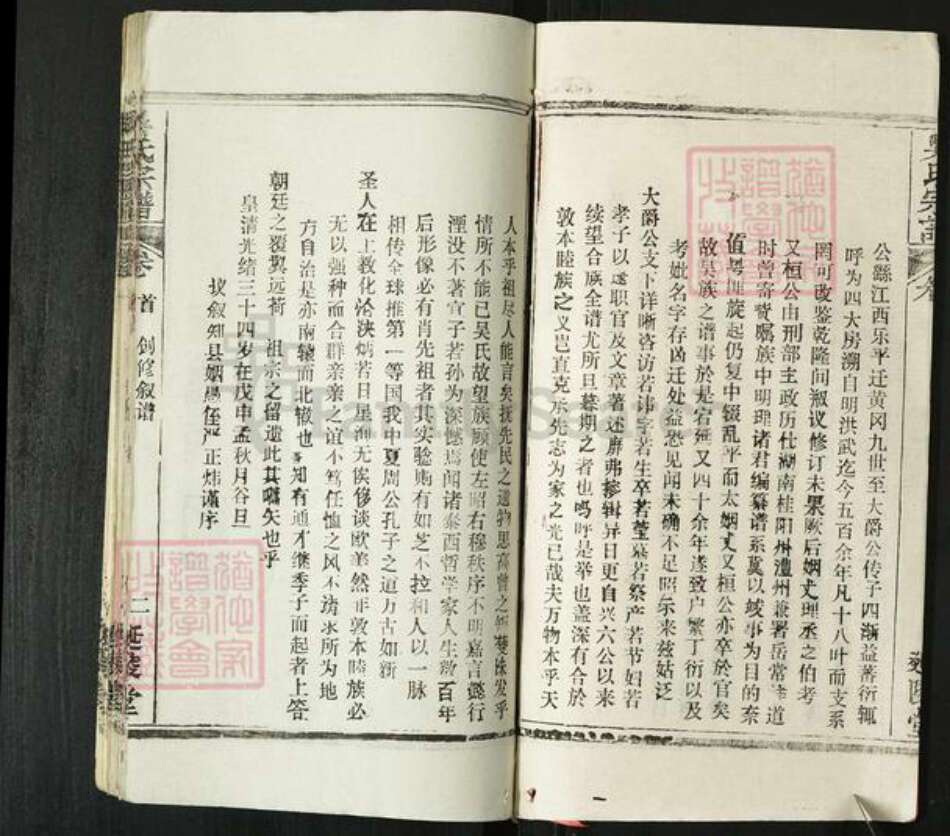 吴氏宗谱
公繇江西乐平迁黄冈九世至大爵公传子四渐益蕃衍辄
呼为四大房溯自明洪武迄今五百余年凡十八叶而支系
罔可改鉴乾隆间溆议修订未果厥后姻丈理丞之伯考
又桓公由刑部主政历仕湖南桂阳州澧州兼署岳常道
时曾寄赀嘱族中明理诸君编纂谱系冀以竣事为目的奈
值粤匪旋起仍复中辍乱平而太姻丈又桓公亦卒於官矣
故吴族之谱事於是宕延又四十余年遂致户繁丁衍以及
考妣名字存凶迁处益恐见闻未确不足昭示来兹姑泛
大爵公支下详晰咨访若讳字若生卒若莹墓若祭产若节妇若
孝子以逮职官及文章著述靡弗掺辑异日更自兴六公以来
续望合族全谱尤所旦暮期之者也呜呼是举也盖深有合於
敦本睦族之义岂直克承先志为家之光已哉夫万物本乎天
人本乎祖尽人能言矣抚先民之遗物思高曾之矩矱怵发乎
情所不能已吴氏故望族顾使左昭右穆秩序不明嘉言懿行
湮没不著宣子若孙为深憾焉闻诸泰西哲学家人生数百年
后形像必有肖先祖者其实验则有如芝不拉和人以一脉
相传全球推第一等国我中夏周公孔子之道万古如新
圣人在上教化沦浃炳若日星海无俟侈谈欧美然非敦本睦族必
无以强种而合群亲亲之谊不笃任恤之风不讲求所为地
方自治是亦南辕而北辙也知有通才继季子而起者上答
朝廷之覆翼远荷 祖宗之留遗此其嚆矢也乎
皇清光绪三十四岁在戊申孟秋月谷旦
拔叙知县姻愚侄严正炜谨序
吴氏宗谱
卷
首 创修叙谱
二 延陵堂